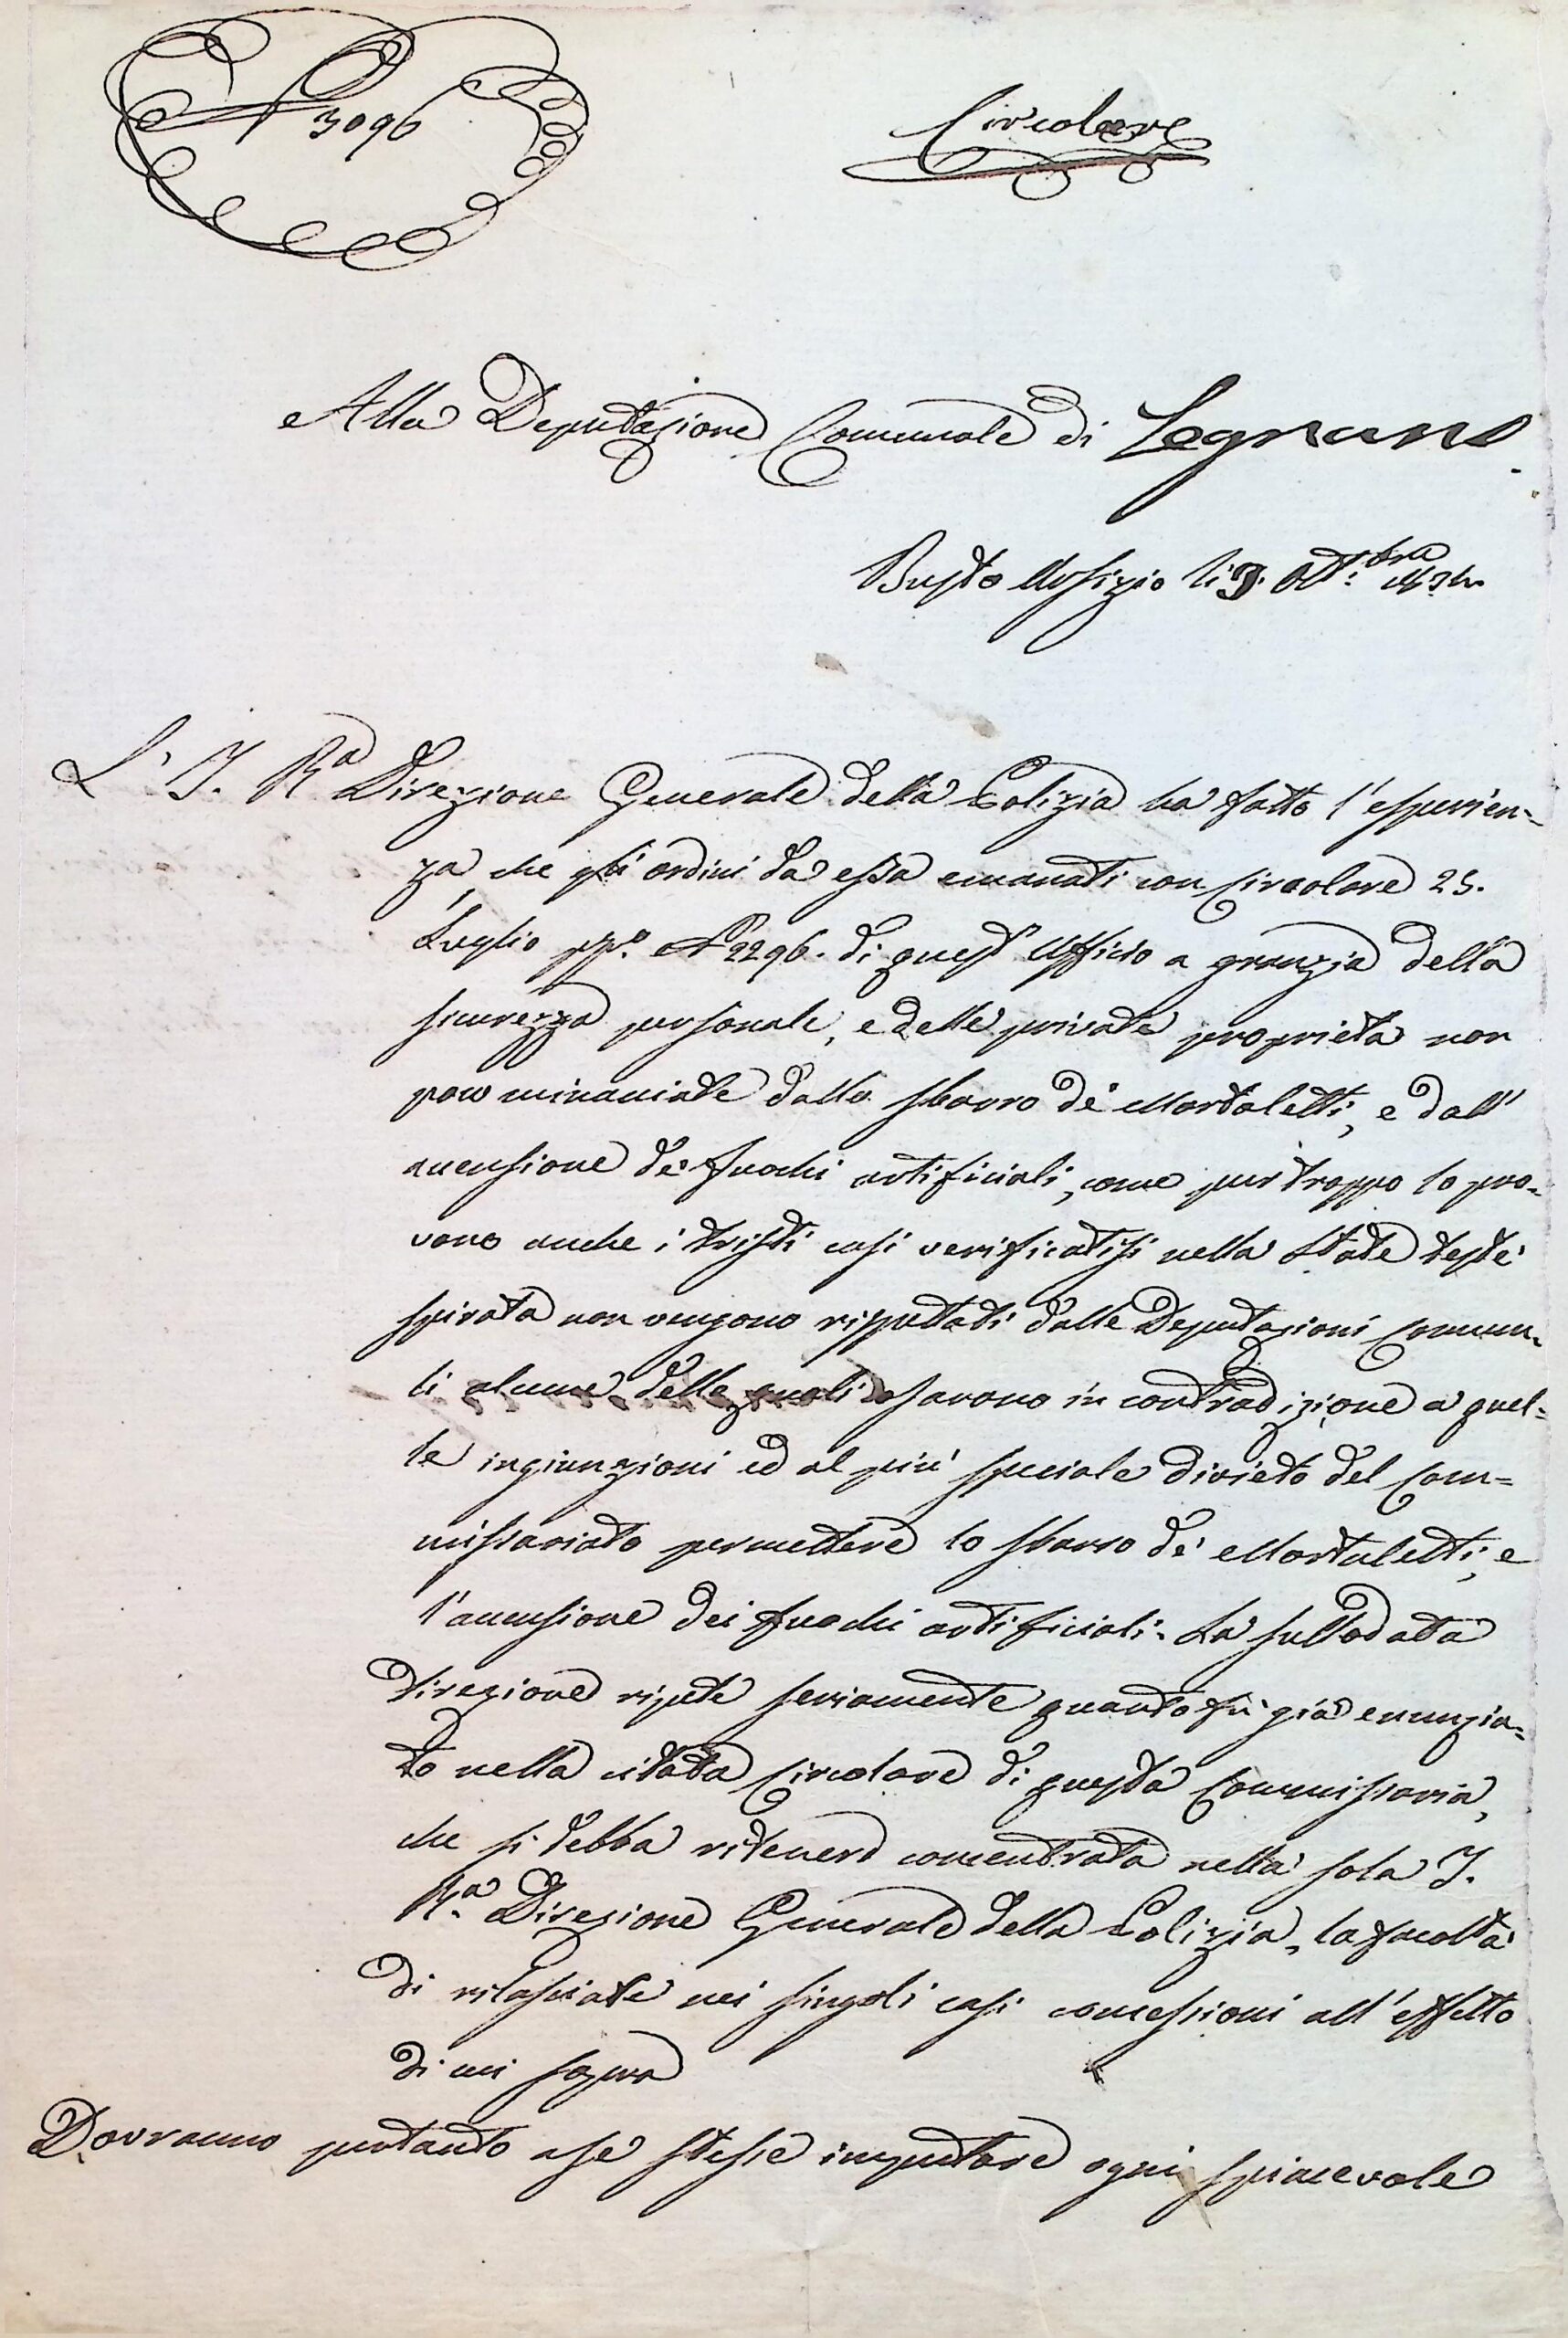 N° 3096
Circolare
Alla Deputazione Comunale di Legnano
Busto Arsizio li 9. Ott:bre 1834.
L' I. Ra Direzione Generale della Polizia ha fatto l'esperien-
za che gli ordini da essa emanati con Circolare 25.
Luglio pp.o N° 2296. di quest' Ufficio a granzia della
sicurezza personale, e delle private proprietà non
poco minaciate dallo sbarro de' Mortaletti, e dall'
accensione de' fuochi artificiali, come pur troppo lo pro-
vano anche i tristi casi verificatisi nella state testè
spirata non vengono rispettati dalle Deputazioni Comuna-
li alcune delle quali osarono in contradizione a quel-
le ingiunzioni ed al più speciale divieto del Com=
missariato permettere lo sbarro de' Mortaletti, e
l'accensione dei fuochi artificiali. La sullodata
Direzione ripete seriamente quanto fù già enunzia-
to nella citata Circolare di questa Commissaria,
che si debba ritenere concentrata nella sola I.
R.a Direzione Generale della Polizia, la facoltà
di rilasciate nei singoli casi concessioni all'effetto
di cui sopra
Dovranno pertanto a se stesse imputare ogni spiacevole